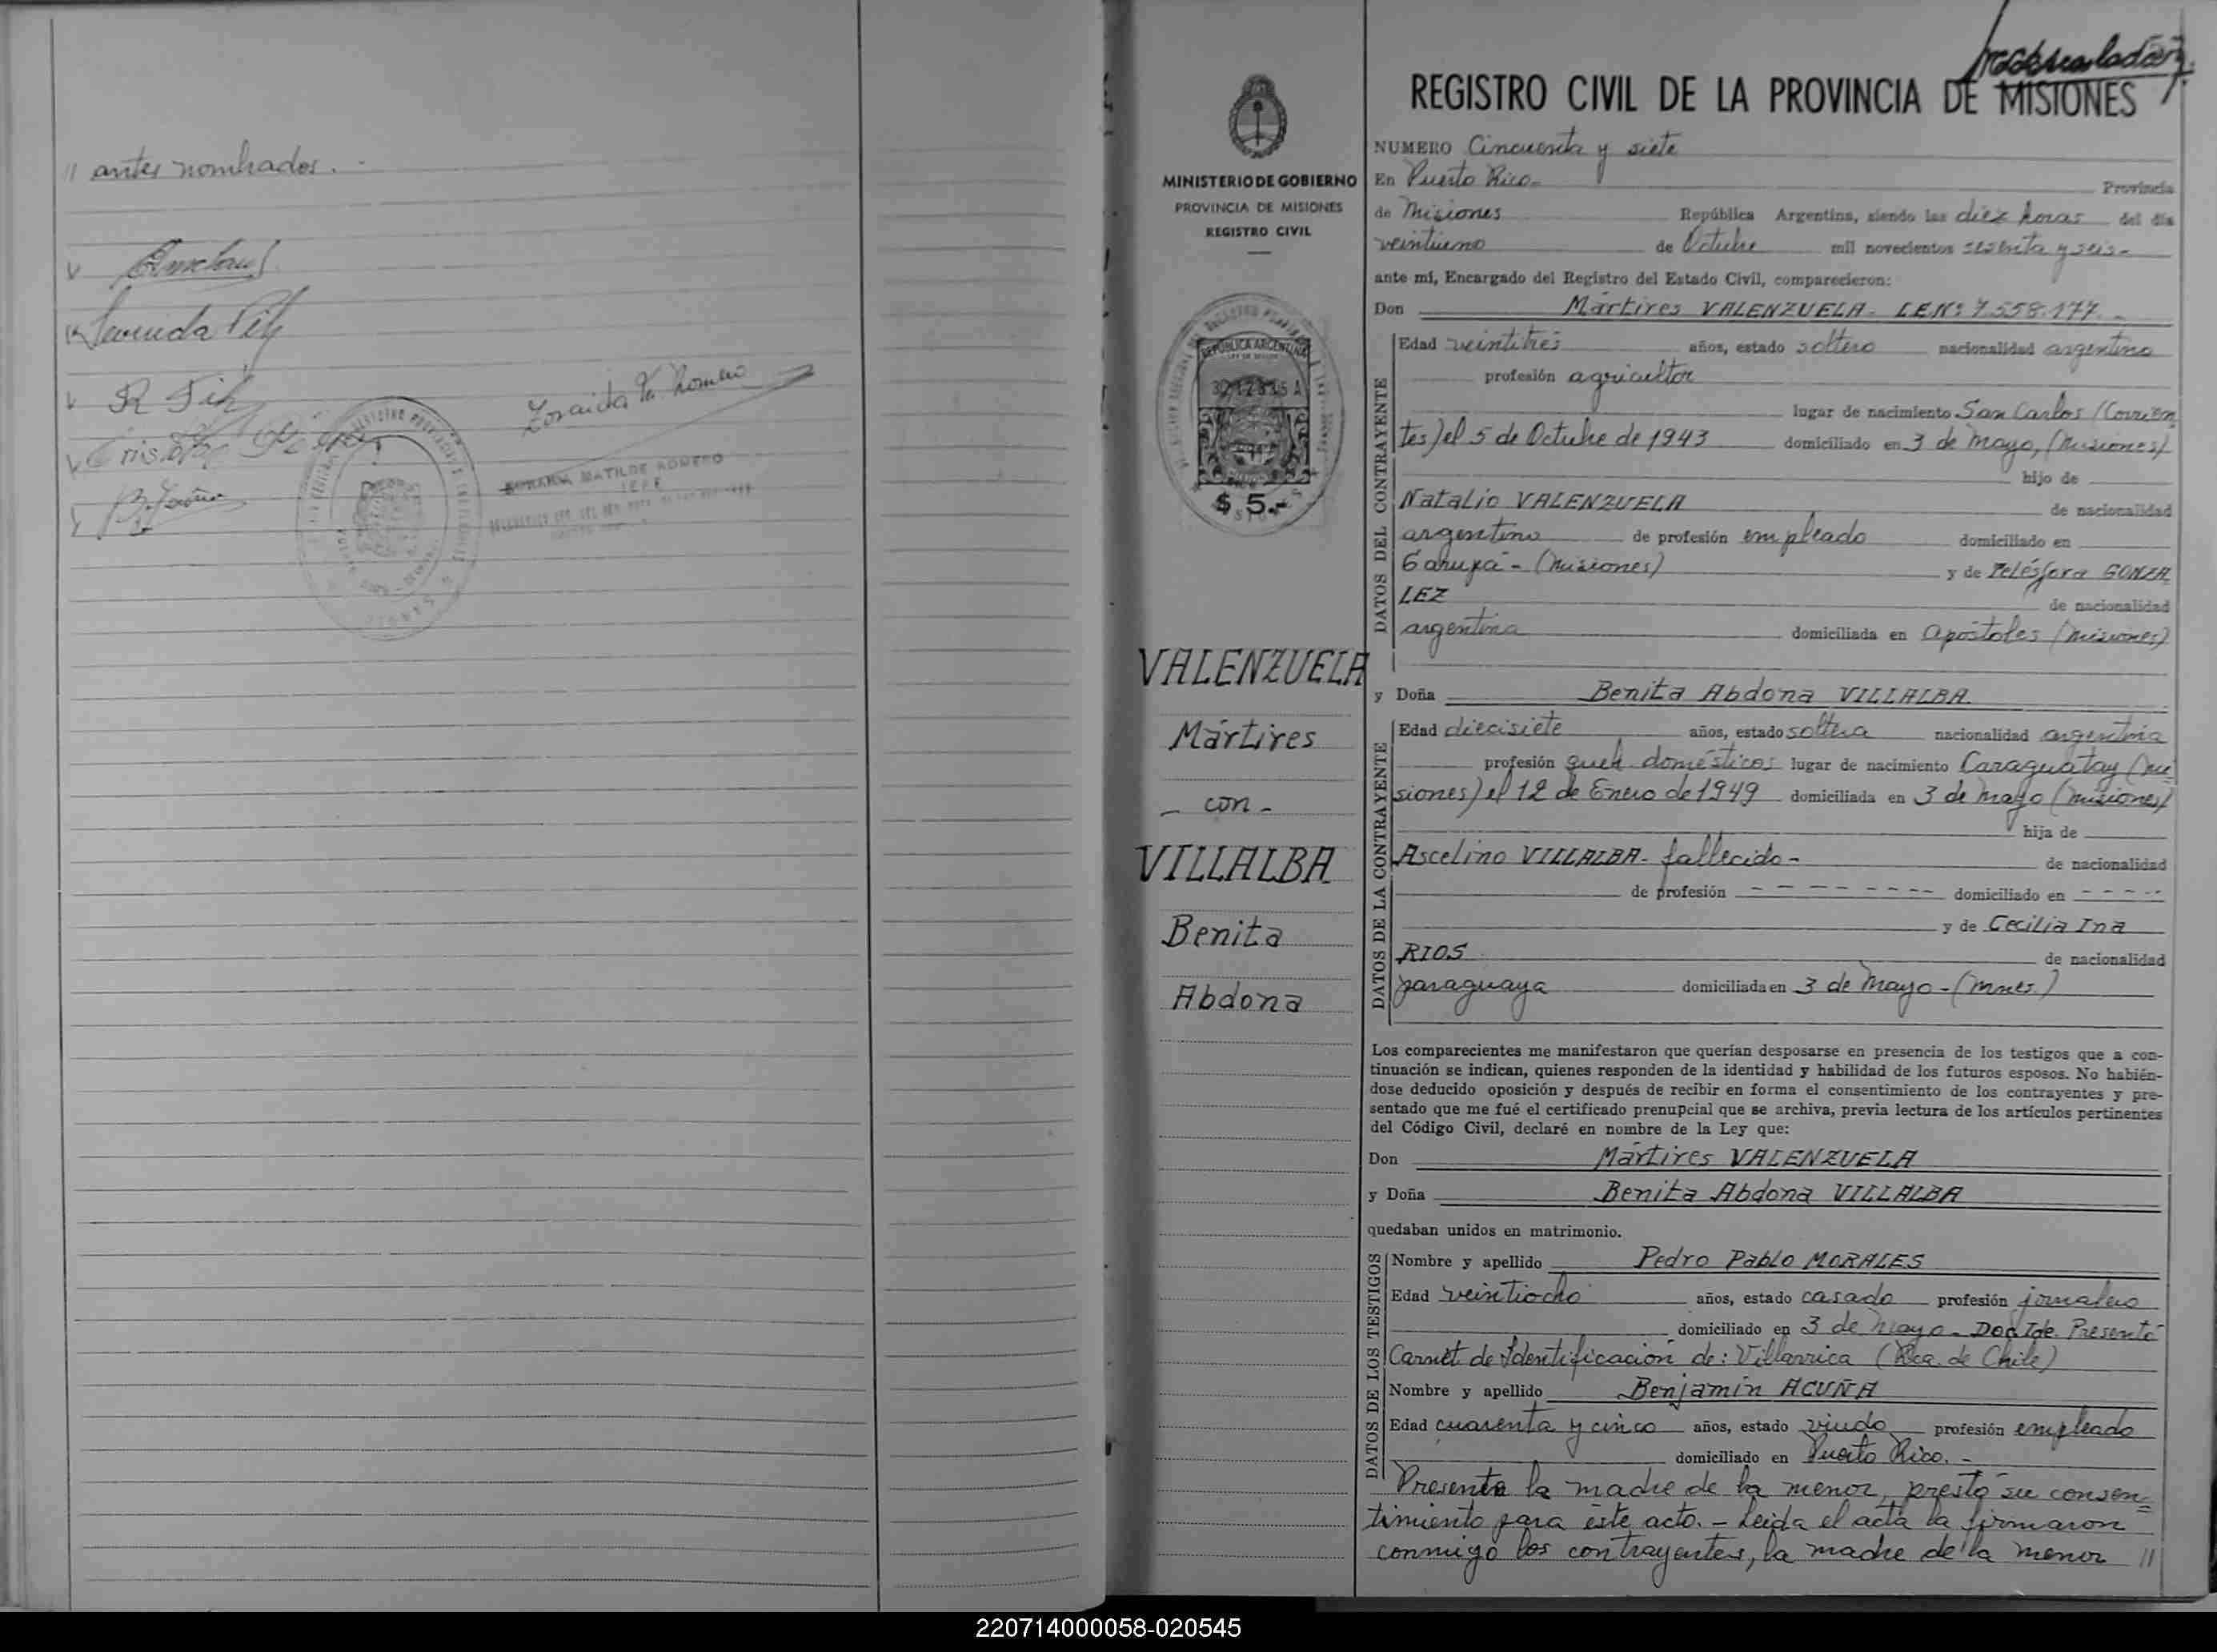 // antes nombrados.-
REPUBLICA ARGENTINA
$ 5.-
MINISTERIO DE GOBIERNO
PROVINCIA DE MISIONES
REGISTRO CIVIL
VALENZUELA
Mártires
- con -
VILLALBA
Benita
Abdona
REGISTRO CIVIL DE LA PROVINCIA DE MISIONES
NUMERO Cincuenta y siete
En Puerto Rico- Provincia
de Misiones República Argentina, siendo las diez horas del día
veintiuno de Octubre mil novecientos sesenta y seis-
ante mí, Encargado del Registro del Estado Civil, comparecieron:
Don Mártires VALENZUELA- L.E.Nº 7.558.177.-
DATOS DEL CONTRAYENTE
Edad veintitrés años, estado soltero nacionalidad argentina
profesión agricultor
lugar de nacimiento San Carlos (Corrien
tes) el 5 de Octubre de 1943 domiciliado en 3 de Mayo, (Misiones)
hijo de
Natalio VALENZUELA de nacionalidad
argentino de profesión empleado domiciliado en
Garupá - (Misiones) y de Telésfora GONZA
LEZ de nacionalidad
argentina domiciliada en Apóstoles (Misiones)
y Doña Benita Abdona VILLALBA
DATOS DE LA CONTRAYENTE
Edad diecisiete años, estado soltera nacionalidad argentina
profesión queh domésticos lugar de nacimiento Caraguatay (Mi
siones) el 12 de Enero de 1949 domiciliada en 3 de Mayo (Misiones)
hija de
Ascelino VILLALBA- fallecido- de nacionalidad
de profesión - - - - - - - - domiciliado en - - - - -
y de Cecilia Ina
RIOS de nacionalidad
paraguaya domiciliada en 3 de Mayo - (Mnes.)
Los comparecientes me manifestaron que querían desposarse en presencia de los testigos que a con-
tinuación se indican, quienes responden de la identidad y habilidad de los futuros esposos. No habién-
dose deducido oposición y después de recibir en forma el consentimiento de los contrayentes y pre-
sentado que me fué el certificado prenupcial que se archiva, previa lectura de los artículos pertinentes
del Código Civil, declaré en nombre de la Ley que:
Don Mártires VALENZUELA
y Doña Benita Abdona VILLALBA
quedaban unidos en matrimonio.
DATOS DE LOS TESTIGOS
Nombre y apellido Pedro Pablo MORALES
Edad veintiocho años, estado casado profesión jornalero
domiciliado en 3 de Mayo - Doc Ide. Presentó
Carnet de Identificación de: Villarrica (Rca. de Chile)
Nombre y apellido Benjamín ACUÑA
Edad cuarenta y cinco años, estado viudo profesión empleado
domiciliado en Puerto Rico. -
Presente la madre de la menor, prestó su consen=
timiento para éste acto. - Leida el acta la firmaron
conmigo los contrayentes, la madre de la menor //
220714000058-020545